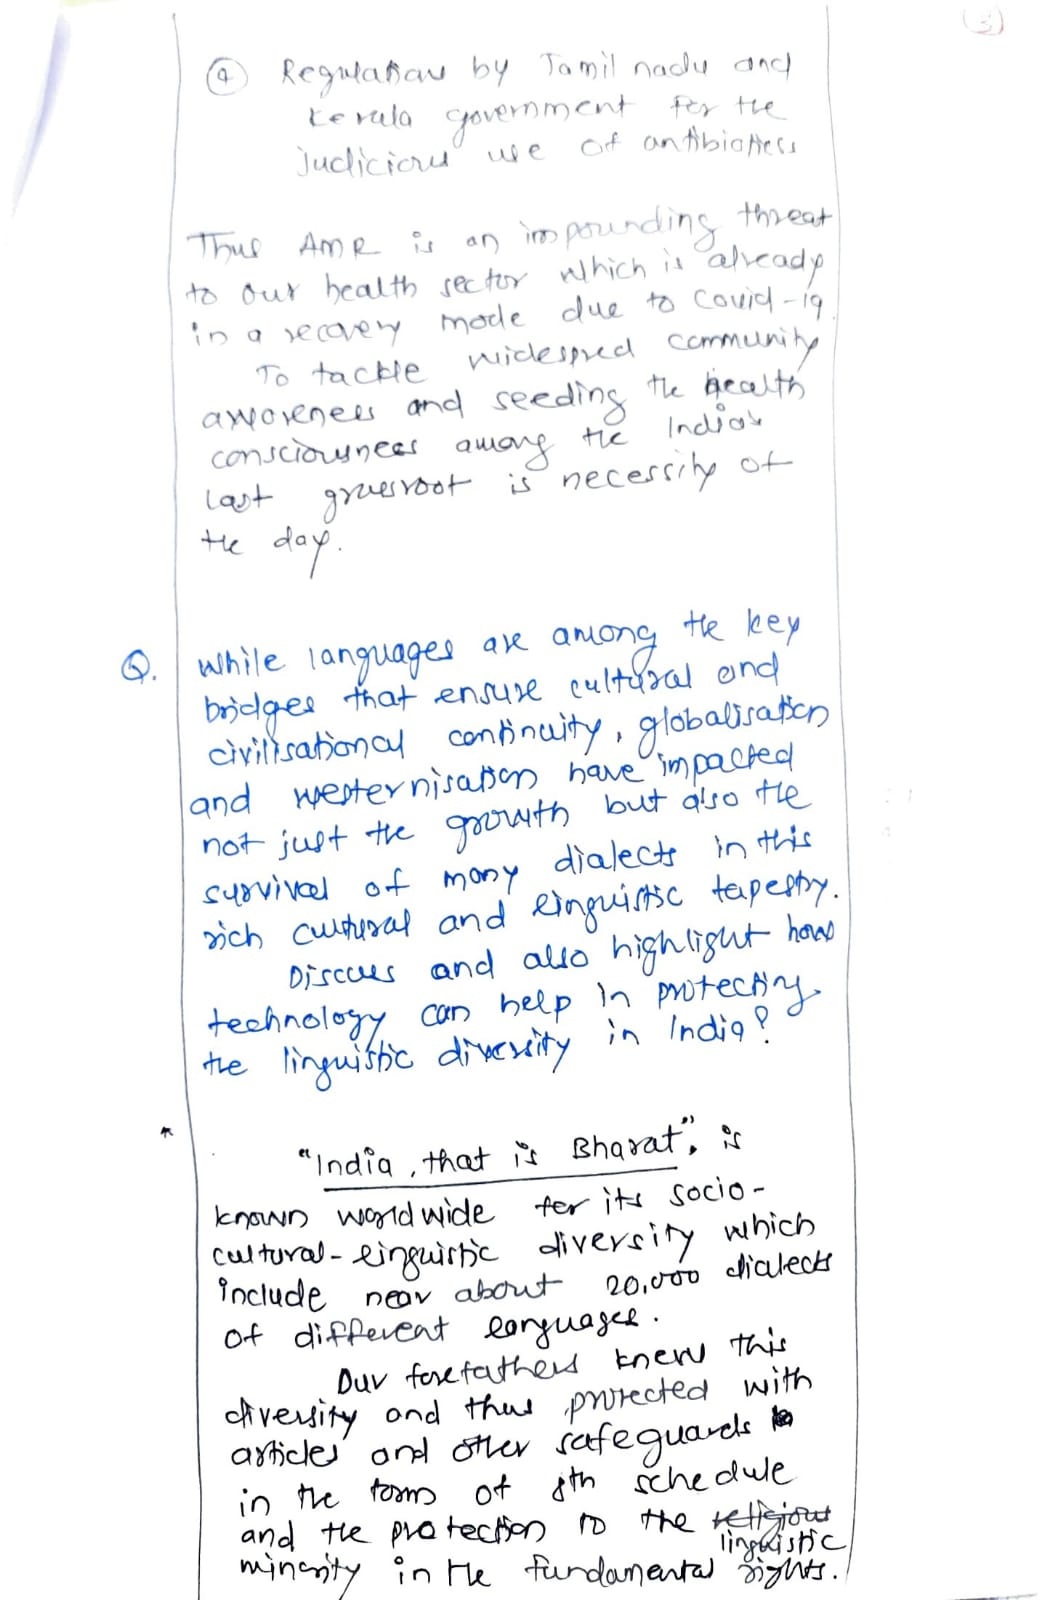 3
4 Regulations by Tamil nadu and
Kerala government for the
judicious use of antibiotics
Thus AMR is an impounding threat
to our health sector which is already
in a recovery mode due to Covid-19.
To tackle widespred community
awareness and seeding the health
consciousness among the India's
last grassroot is necessity of
the day.
Q. While languages are among the key
bridges that ensure cultural and
civilisational continuity, globalisation
and westernisation have impacted
not just the growth but also the
survival of many dialects in this
rich cultural and linguistic tapestry.
Discuss and also highlight how
technology can help in protecting
the linguistic diversity in India?
"India, that is Bharat", is
known world wide for its socio-
cultural-linguistic diversity which
include near about 20,000 dialects
of different languages.
Our forefathers knew this
diversity and thus protected with
articles and other safeguards
in the form of 8th schedule
and the protection to the religious
linguistic
minority in the fundamental rights.